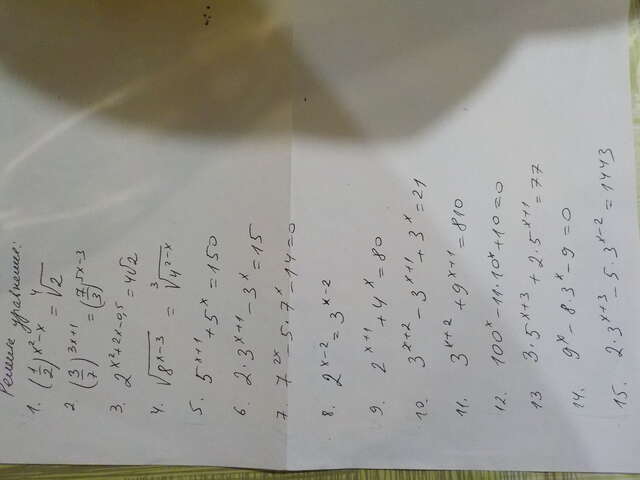 Решите уравнения:
1. (1/2)^(x²-x) = ⁴√2
2. (3/7)^(3x+1) = (7/3)^(5x-3)
3. 2^(x²+2x-0,5) = 4√2
4. √(8^(x-3)) = ³√(4^(2-x))
5. 5^(x+1) + 5^x = 150
6. 2·3^(x+1) - 3^x = 15
7. 7^(2x) - 5·7^x - 14 = 0
8. 2^(x-2) = 3^(x-2)
9. 2^(x+1) + 4^x = 80
10. 3^(x+2) - 3^(x+1) + 3^x = 21
11. 3^(x+2) + 9^(x+1) = 810
12. 100^x - 11·10^x + 10 = 0
13 3·5^(x+3) + 2·5^(x+1) = 77
14. 9^x - 8·3^x - 9 = 0
15. 2·3^(x+3) - 5·3^(x-2) = 1443